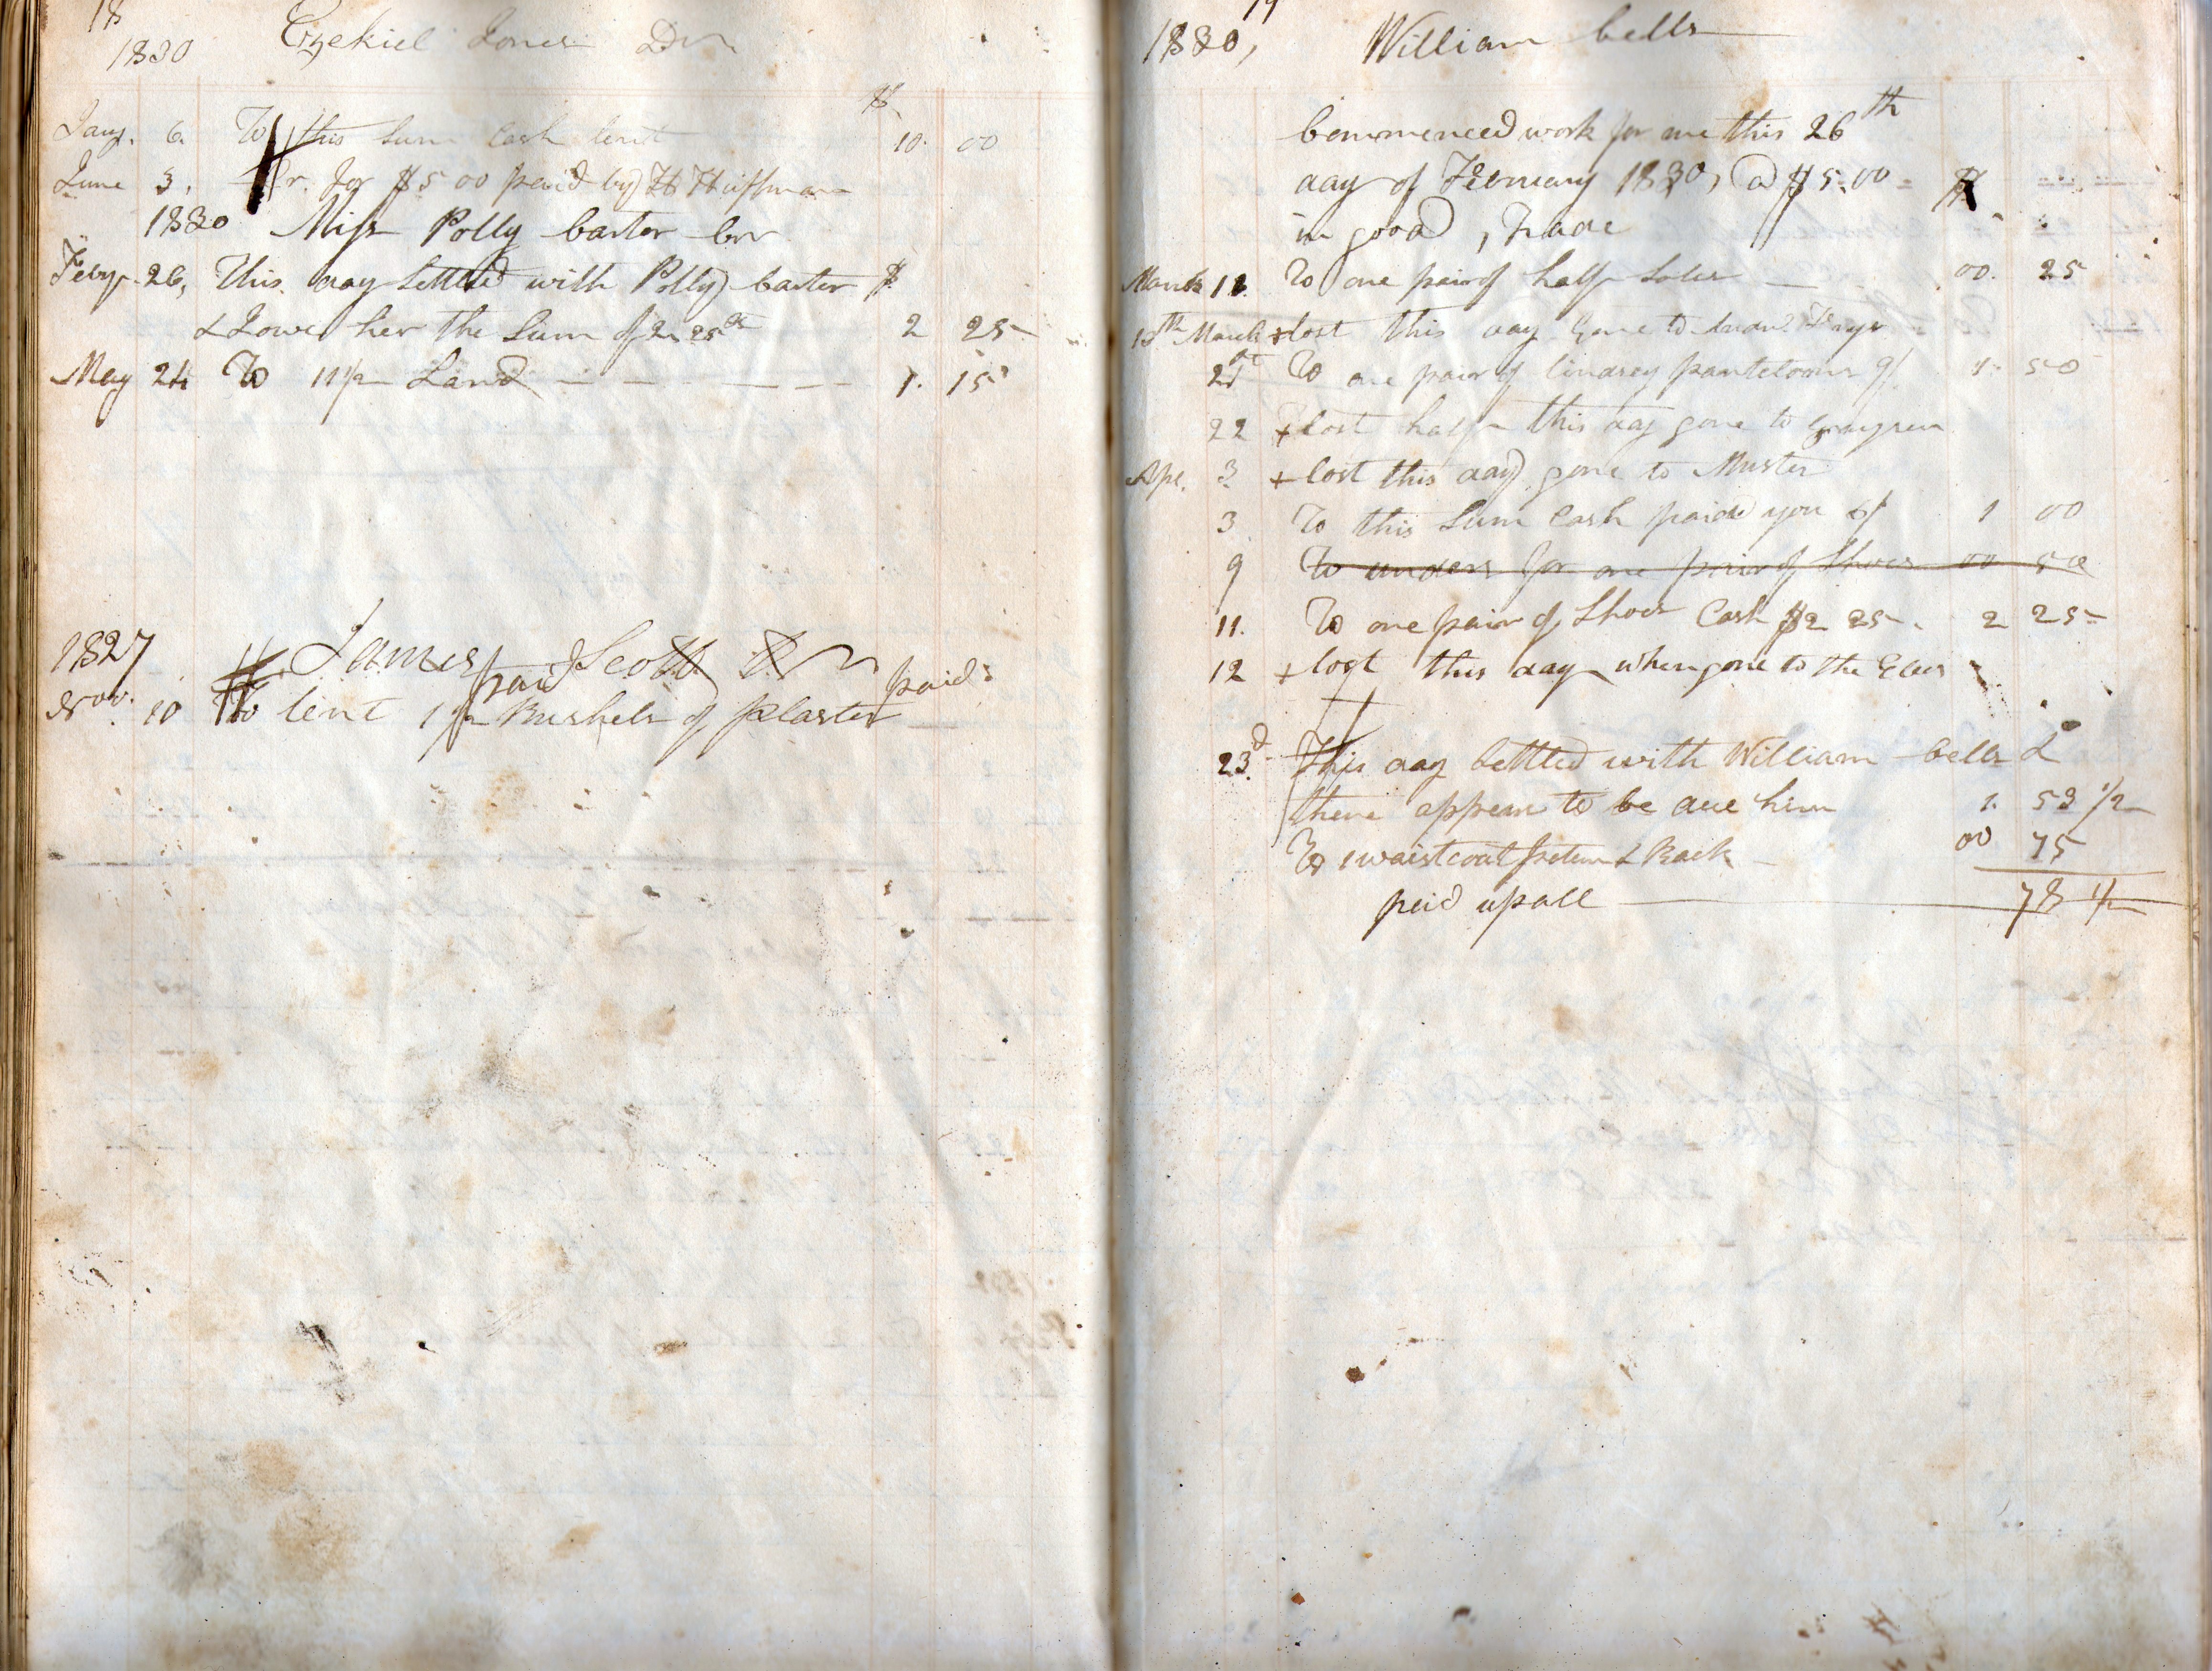 18
1830 Ezekiel Jones Dr
$
Jany. 6. To this Sum Cash lent 10. 00
June 3. Cr. for $5 00 paid by H Huffman
1830 Miss Polly Carter Cr
Feby. 26, This day Settled with Polly Carter $
& I owe her the Sum of 2 25 cts 2 25
May 24 To 11 1/2 Lard 1. 15
1827 James Scott Dr
paid paid
Nov. 10 To lent 1 1/2 Bushels of plaster
19
1830, William Cells
Commenced work for me this 26th
day of February 1830, @ $5.00 $
in good, trade
March 12. To one pair of half Soles 00. 25
15th March + lost this day Gone to
21st To one pair of lindsey pantaloons 1. 50
22 + lost half this day gone to
Apl. 3 + lost this day gone to Muster
3 To this Sum Cash paid you 1 00
9 To for one pair of Shoes 00 50
11. To one pair of Shoes Cash $2 25. 2 25
12 + lost this day when gone to the
23d This day Settled with William Cells &
there appears to be due him 1. 53 1/2
To 1 waistcoat & Back 00 75
paid up all 78 1/2